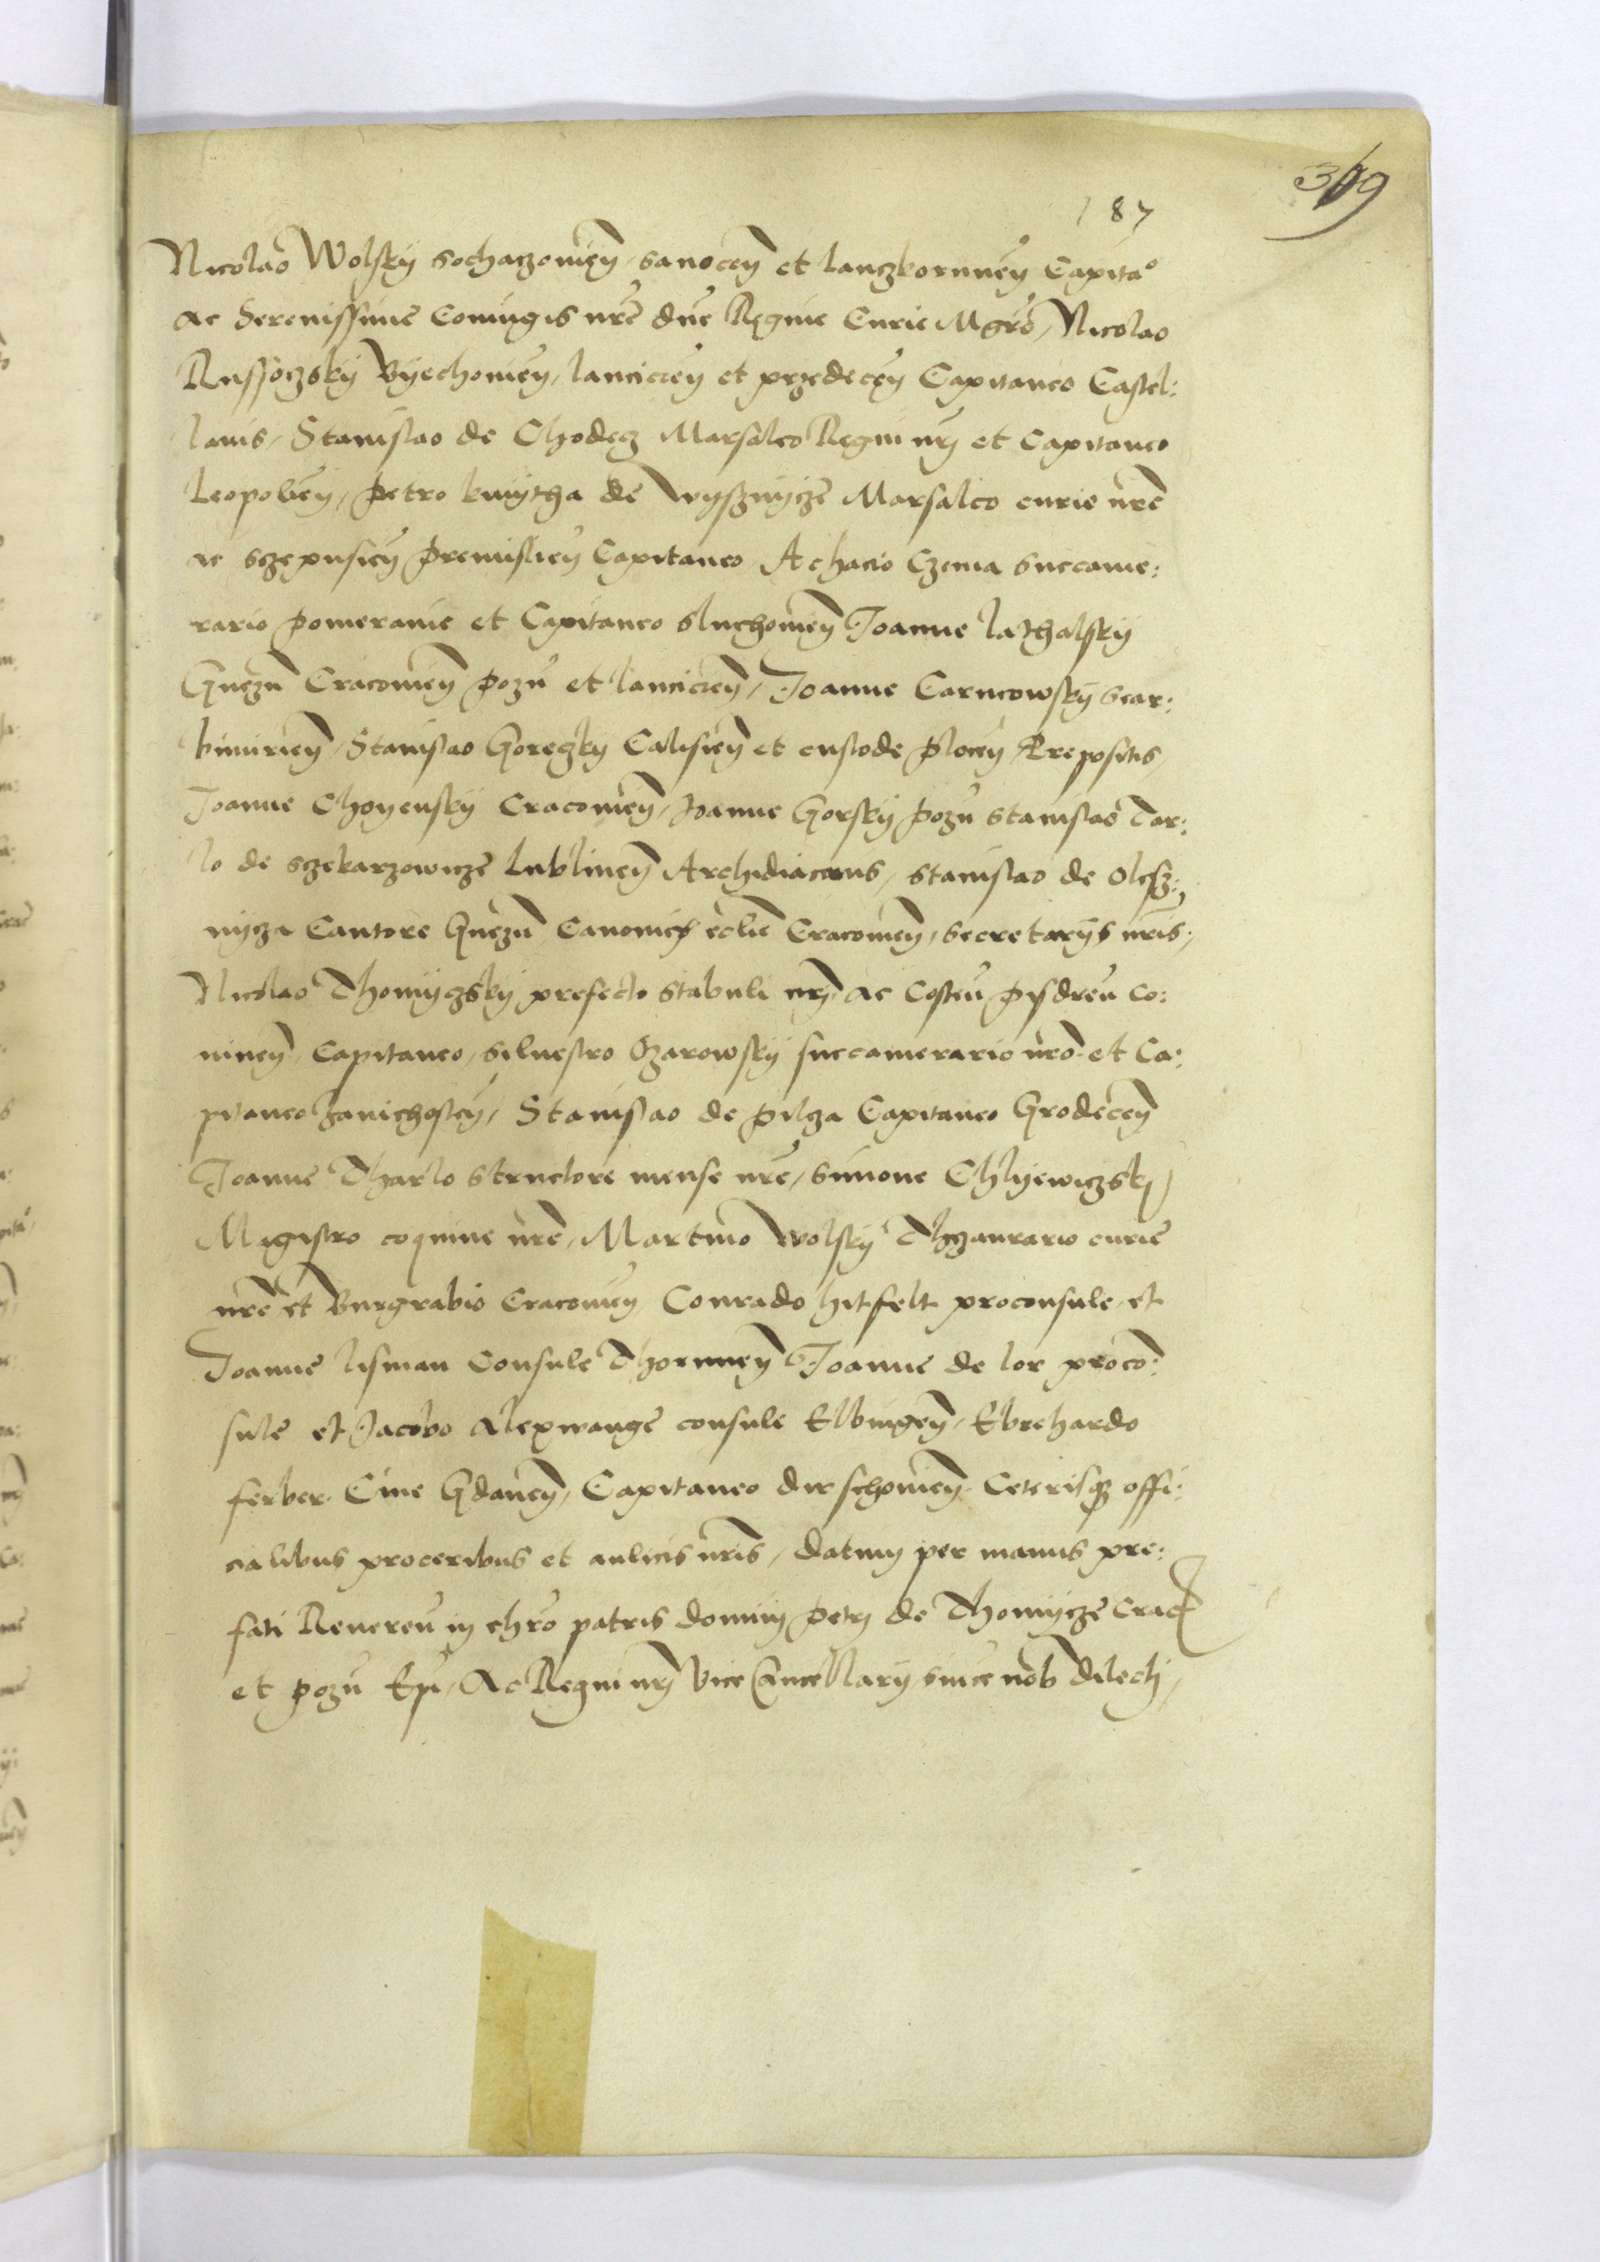 319
187
Nicolao Wolsky Sochaczouieñ Sanoceñ et Lanczkoruneñ Capita°
ac Serenissime Coniugis nr̃e dñe Regine Curie Mgr̃o, Nicolao
Russoczsky Byechouieñ, lancicieñ et przedeceñ Capitaneo Castel:
lanis, Stanislao de Chodecz Marsalco Regni nrĩ et Capitaneo
Leopolieñ, Petro kmytha de Wysznycze Marsalco curie nr̃e
ac Sczepusieñ Premislieñ Capitaneo Achacio Czema Succame:
rario Pomeranie et Capitaneo Sluchouieñ Joanne lathalsky
Gnezñ Cracouieñ Pozñ et lancicieñ, Joanne Carncowsky Scar:
bimirieñ, Stanislao Goreczky Calisieñ et custode Ploceñ Prepositis,
Joanne Choyensky Cracouieñ, Joanne Gorsky Pozñ Stanislao Tar:
lo de Sczekarzowicze Lublineñ Archidiaconis, Stanislao de Olesz:
nycza Cantore Gnezñ Canonicis ecclie Cracouieñ, Secretarys nr̃is,
Nicolao Thomyczsky prefecto stabuli nrĩ ac Costeñ Pysdreñ Co:
nineñ Capitaneo, Siluestro Ozarowsky succamerario nr̃o et Ca:
pitaneo Zanichosteñ, Stanislao de Pilcza Capitaneo Grodeceñ
Joanne Tharlo Structore mense nr̃e, Simone Chlyewiczsky
Magistro coquine nr̃e, Martino Wolsky Thezaurario curie
nr̃e et Burgrabio Cracouieñ Conrado hitfelt proconsule et
Joanne lisman Consule Thoruneñ Joanne de lor proco:
sule et Jacobo Alexwange consule Elbingeñ, Ebrehardo
ferber Ciue Gdaneñ, Capitaneo dirschouieñ Ceterisq₃ offi:
cialibus proceribus et aulicis nr̃is, datum per manus pre:
fati Reuereñ in chr̃o patris domini Petri de Thomycze Crac
et pozñ Epi, Ac Regni nrĩ Vicecancellarij sincẽ nob dilecti,